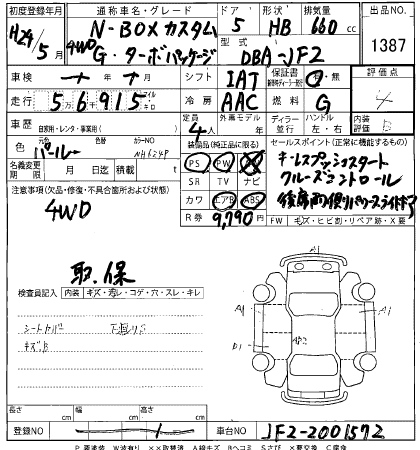 初度登録年月 通称車名・グレード ドア 形状 排気量 出品NO
H24/5月 N-BOXカスタム 5 HB 660cc 1387
4WD G・ターボパッケージ 型式 DBA-JF2
車検 年 月 シフト IAT 保証書 有・無 評価点 4
走行 56915 キロ 冷房 AAC 燃料 G
車歴 自家用・レンタ・事業用( ) 定員 4人 外廓モデル年 ディーラー 並行 ハンドル 左・右 内装 B
色 パール カラーNO NH624P 装備品(純正品に限る) セールスポイント(正常に機能するもの)
名義変更期限 月 日迄 積載量 t PS PW キーレスプッシュスタート
注意事項(欠品・修復・不具合箇所および状態) SR TV ナビ クルーズコントロール
4WD カワ エアB ABS 後席両側パワースライドドア
R券 9,790円 FW キズ・ヒビ割・リペア跡・X要
取.保
A1
検査員記入 内装 キズ・汚レ・コゲ・穴・スレ・キレ
シートカバー 下廻りS
A1 A1
キズB
B1
長さ cm 幅 cm 高さ cm
登録NO 車台NO JF2-2001572
P要塗装 W波有り ××交換済 A線キズ Bヘコミ Sサビ ×要交換 C腐食